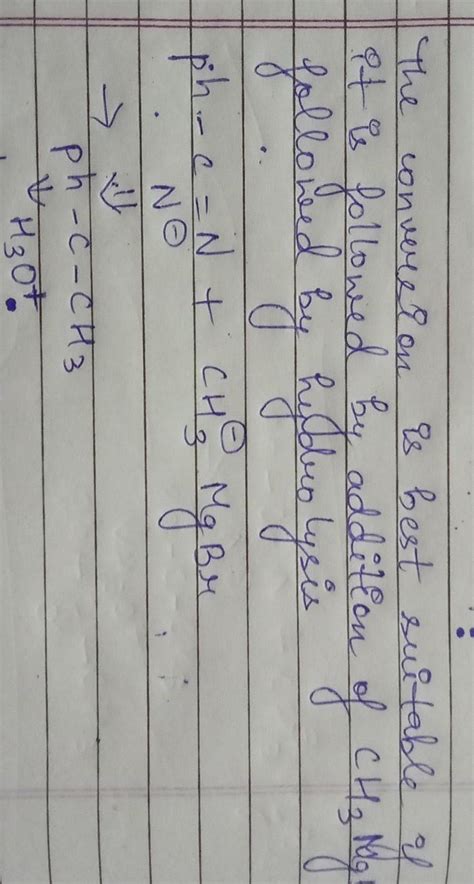 The conversion is best suitable of
it is followed by addition of CH3Mg
followed by hydrolysis
ph-C=N + CH3⊖MgBr
N⊖
→ ⇓
ph-C-CH3
↓ H3O+